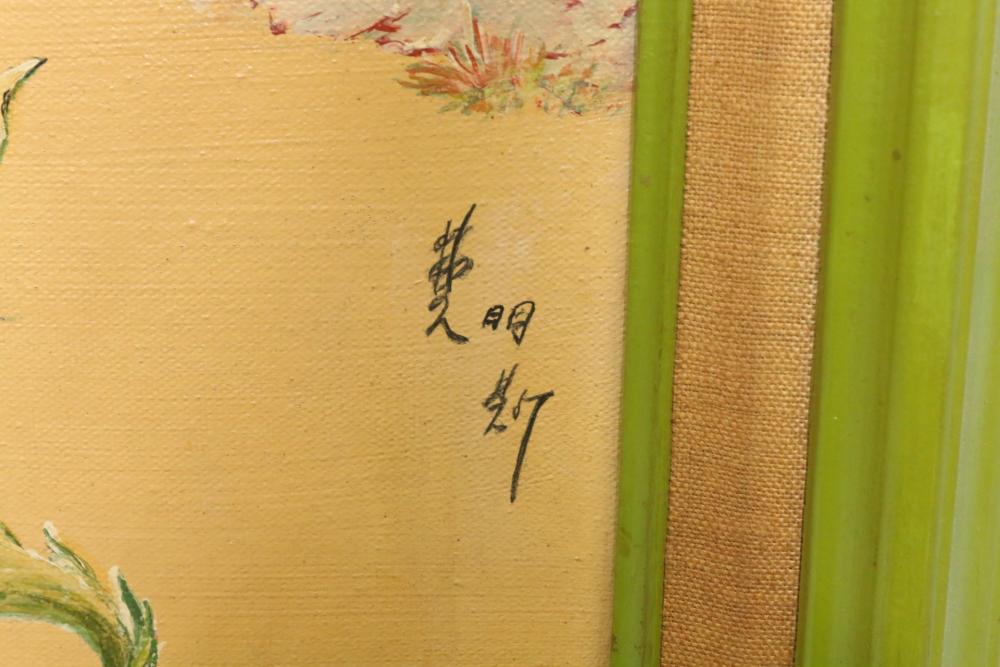 費明斯